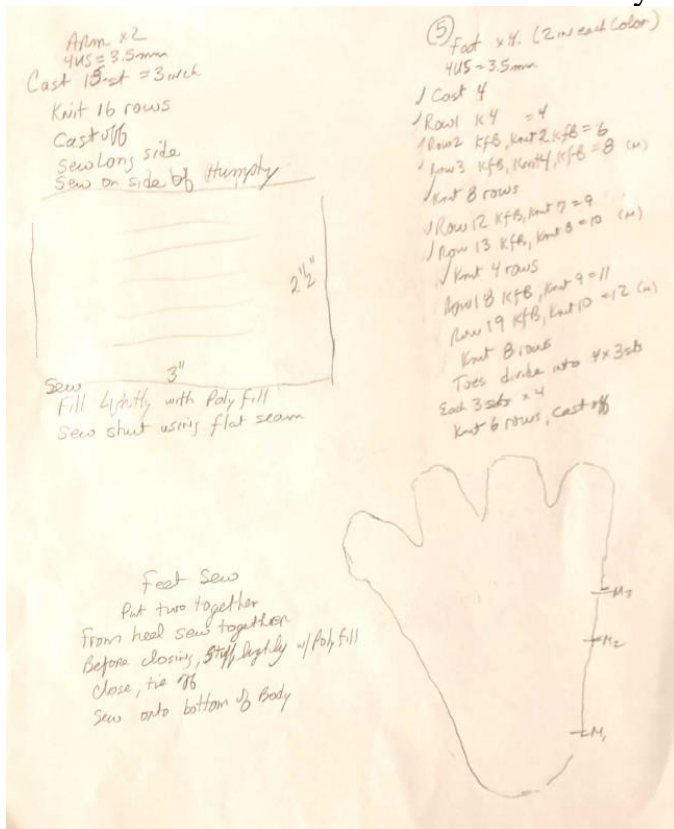 Arm x2
4US = 3.5mm
Cast 15 st = 3 inch
Knit 16 rows
Cast off
Sew Long side
Sew on side of Humphty
2 1/2"
3"
Sew
Fill Lightly with Poly fill
Sew shut using flat seam
Feet Sew
Put two together
From heel sew together
Before closing, Stuff lightly w/ Poly fill
Close, tie off
Sew onto bottom of Body
⑤ Foot x4. (2 in each Color)
4US = 3.5mm
✓ Cast 4
✓ Row 1 K4 = 4
✓ Row 2 KfB, Knit 2 KfB = 6
✓ Row 3 KfB, Knit 4, KfB = 8 (M)
✓ Knit 8 rows
✓ Row 12 KfB, Knit 7 = 9
✓ Row 13 KfB, Knit 8 = 10 (M)
✓ Knit 4 rows
Row 18 KfB, Knit 9 = 11
Row 19 KfB, Knit 10 = 12 (M)
Knit 8 rows
Toes divide into 4 x 3 sts
Each 3 sts x 4
Knit 6 rows, Cast off
M3
M2
M1